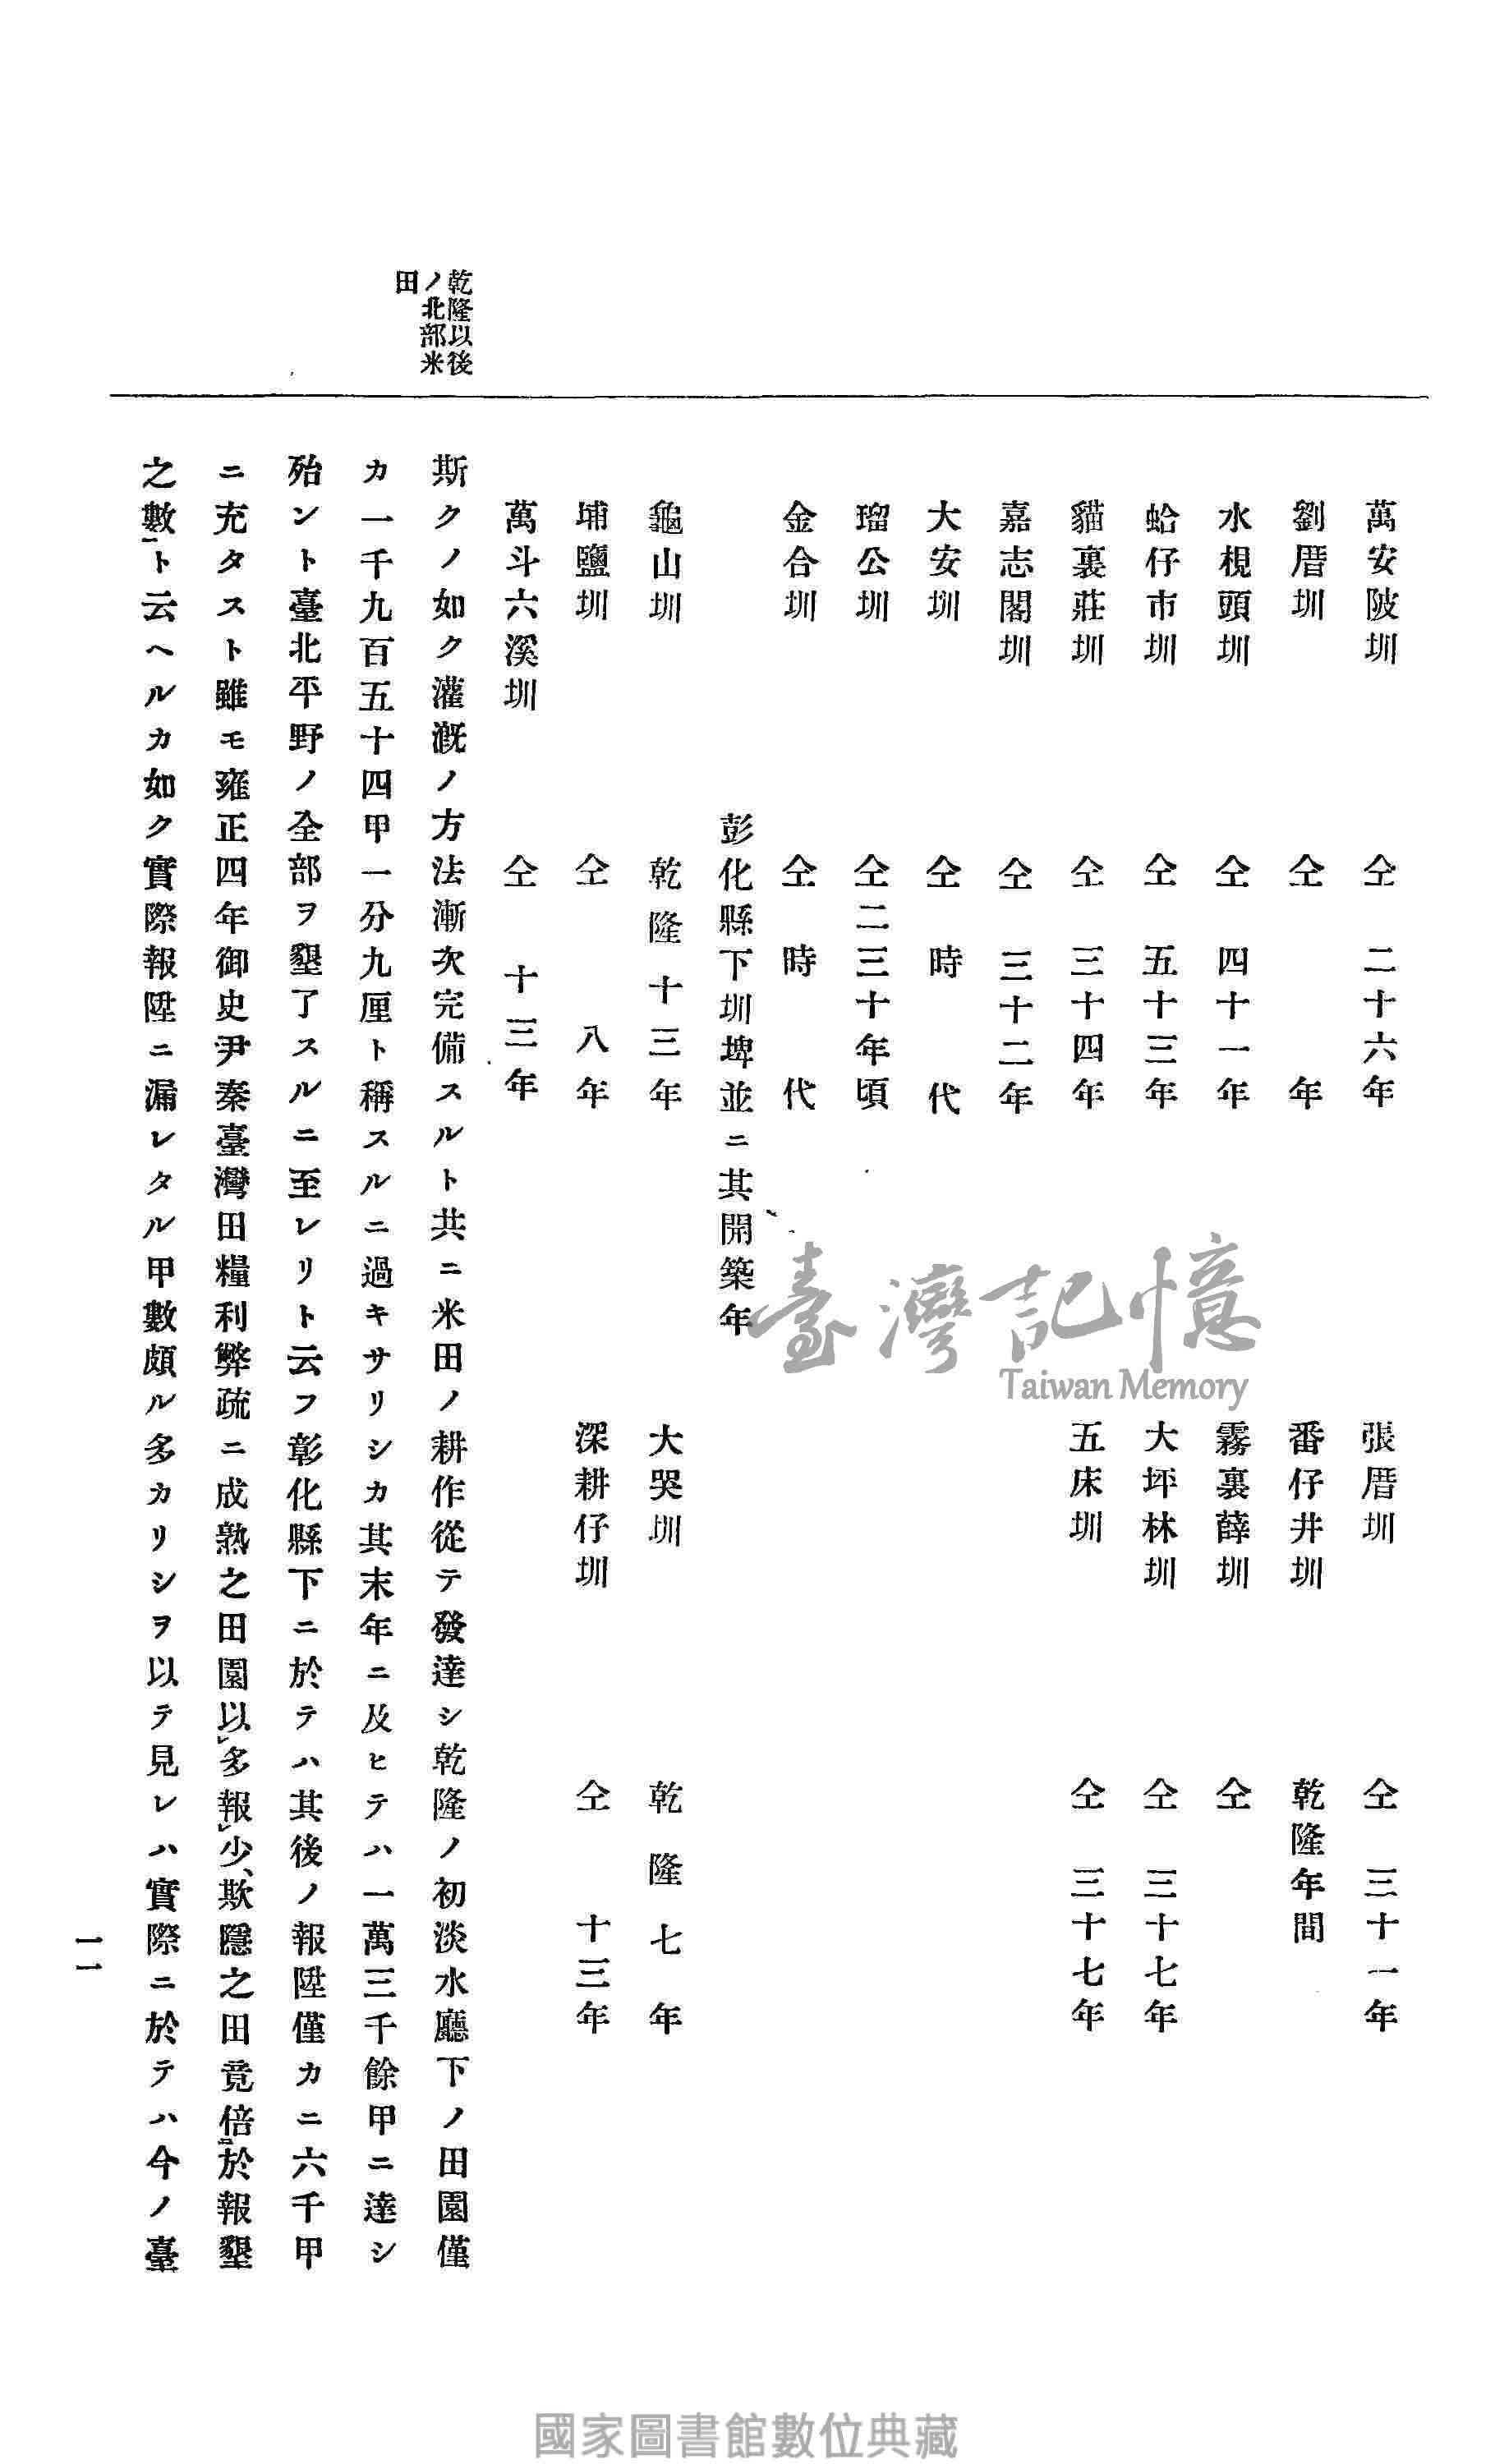 乾隆以後
ノ北部米
田
萬安陂圳　仝　二十六年　張厝圳　仝　三十一年
劉厝圳　仝　年　番仔井圳　乾隆年間
水梘頭圳　仝　四十一年　霧裏薛圳　仝
蛤仔市圳　仝　五十三年　大坪林圳　仝　三十七年
貓裏莊圳　仝　三十四年　五床圳　仝　三十七年
嘉志閣圳　仝　三十二年
大安圳　仝　時　代
瑠公圳　仝二三十年頃
金合圳　仝　時　代
彭化縣下圳埤並ニ其開築年
龜山圳　乾隆十三年　大哭圳　乾隆七年
埔鹽圳　仝　八年　深耕仔圳　仝　十三年
萬斗六溪圳　仝　十三年
斯クノ如ク灌漑ノ方法漸次完備スルト共ニ米田ノ耕作從テ發達シ乾隆ノ初淡水廳下ノ田園僅
カ一千九百五十四甲一分九厘ト稱スルニ過キサリシカ其末年ニ及ヒテハ一萬三千餘甲ニ達シ
殆ント臺北平野ノ全部ヲ墾了スルニ至レリト云フ彰化縣下ニ於テハ其後ノ報陞僅カニ六千甲
ニ充タスト雖モ雍正四年御史尹秦臺灣田糧利弊疏ニ成熟之田園以レ多報レ少、欺隱之田竟倍ニ於報墾
之數一ト云ヘルカ如ク實際報陞ニ漏レタル甲數頗ル多カリシヲ以テ見レハ實際ニ於テハ今ノ臺
一一
臺灣記憶
Taiwan Memory
國家圖書館數位典藏